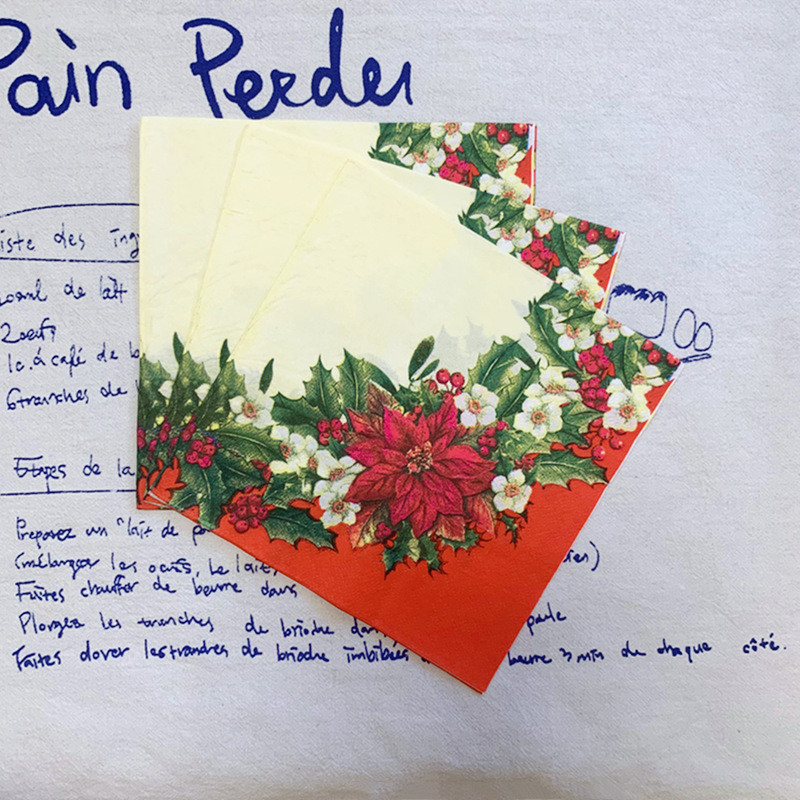 Pain Perdu
iste des ing
de lait
2 oeufs
1c. à café de b
6 tranches de
Etapes de la
Preparez un "lait de po
(mélanger les oeufs, le lait,
ien)
Faites chauffer de beurre dans
Plongez les tranches de brioche dans
paule
Faites dorer les tranches de brioche imbibées
beurre 3 min de chaque côté.